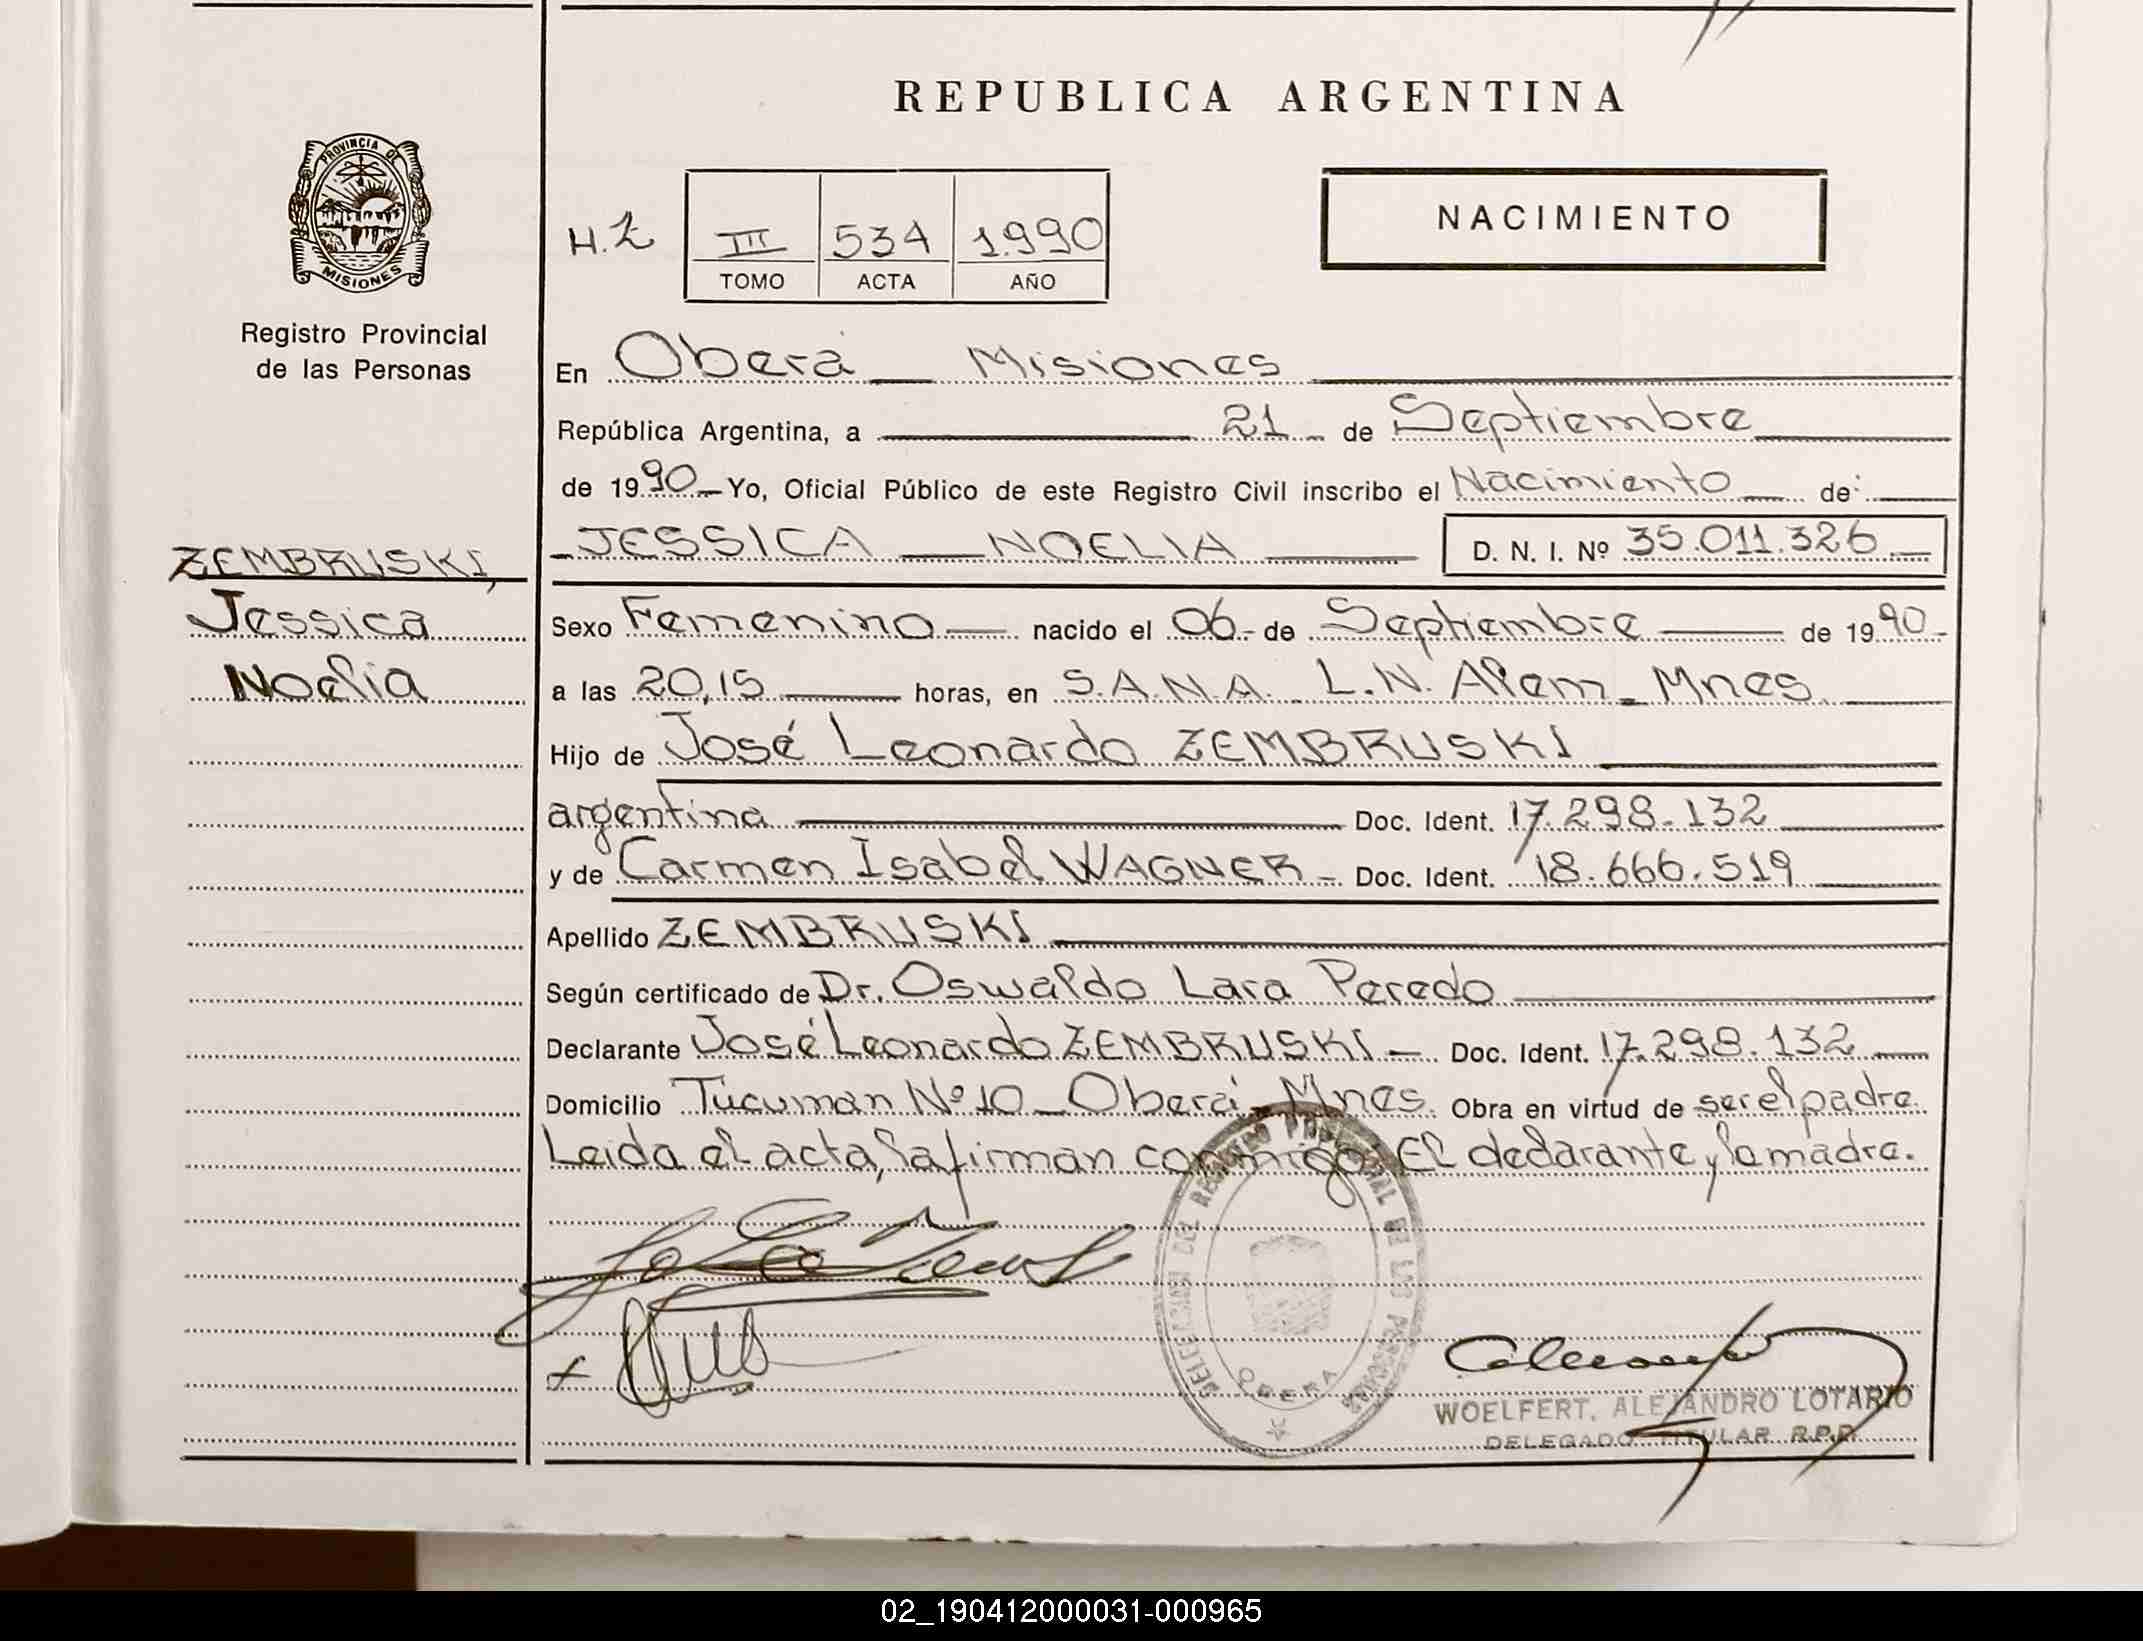 REPUBLICA ARGENTINA
PROVINCIA DE
MISIONES
Registro Provincial
de las Personas
H.Z III 534 1.990
TOMO ACTA AÑO
NACIMIENTO
En Oberá Misiones
República Argentina, a 21 de Septiembre
de 1990 Yo, Oficial Público de este Registro Civil inscribo el Nacimiento de:
JESSICA NOELIA D. N. I. Nº 35.011.326
ZEMBRUSKI,
Jessica
Noelia
Sexo Femenino nacido el 06 de Septiembre de 1990
a las 20,15 horas, en S.A.M.A. L.N. Alem Mnes.
Hijo de José Leonardo ZEMBRUSKI
argentina Doc. Ident. 17.298.132
y de Carmen Isabel WAGNER Doc. Ident. 18.666.519
Apellido ZEMBRUSKI
Según certificado de Dr. Oswaldo Lara Peredo
Declarante José Leonardo ZEMBRUSKI Doc. Ident. 17.298.132
Domicilio Tucuman Nº 10 Oberá Mnes. Obra en virtud de ser el padre.
Leida el acta, la firman conmigo: El declarante y la madre.
DELEGACION DEL REGISTRO PROVINCIAL DE LAS PERSONAS
OBERA
WOELFERT, ALEJANDRO LOTARIO
DELEGADO TITULAR R.P.P.
02_190412000031-000965